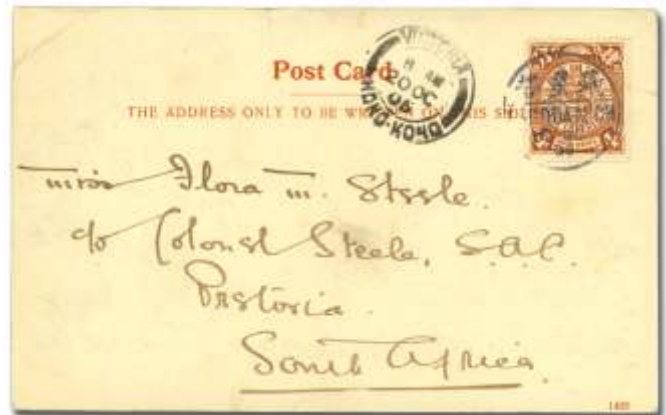 Post Card
THE ADDRESS ONLY TO BE ON THIS SIDE
VICTORIA
8 AM
20 OC
06
HONG-KONG
Miss Flora M. Steele.
c/o Colonel Steele, S.A.C.
Pretoria.
South Africa.